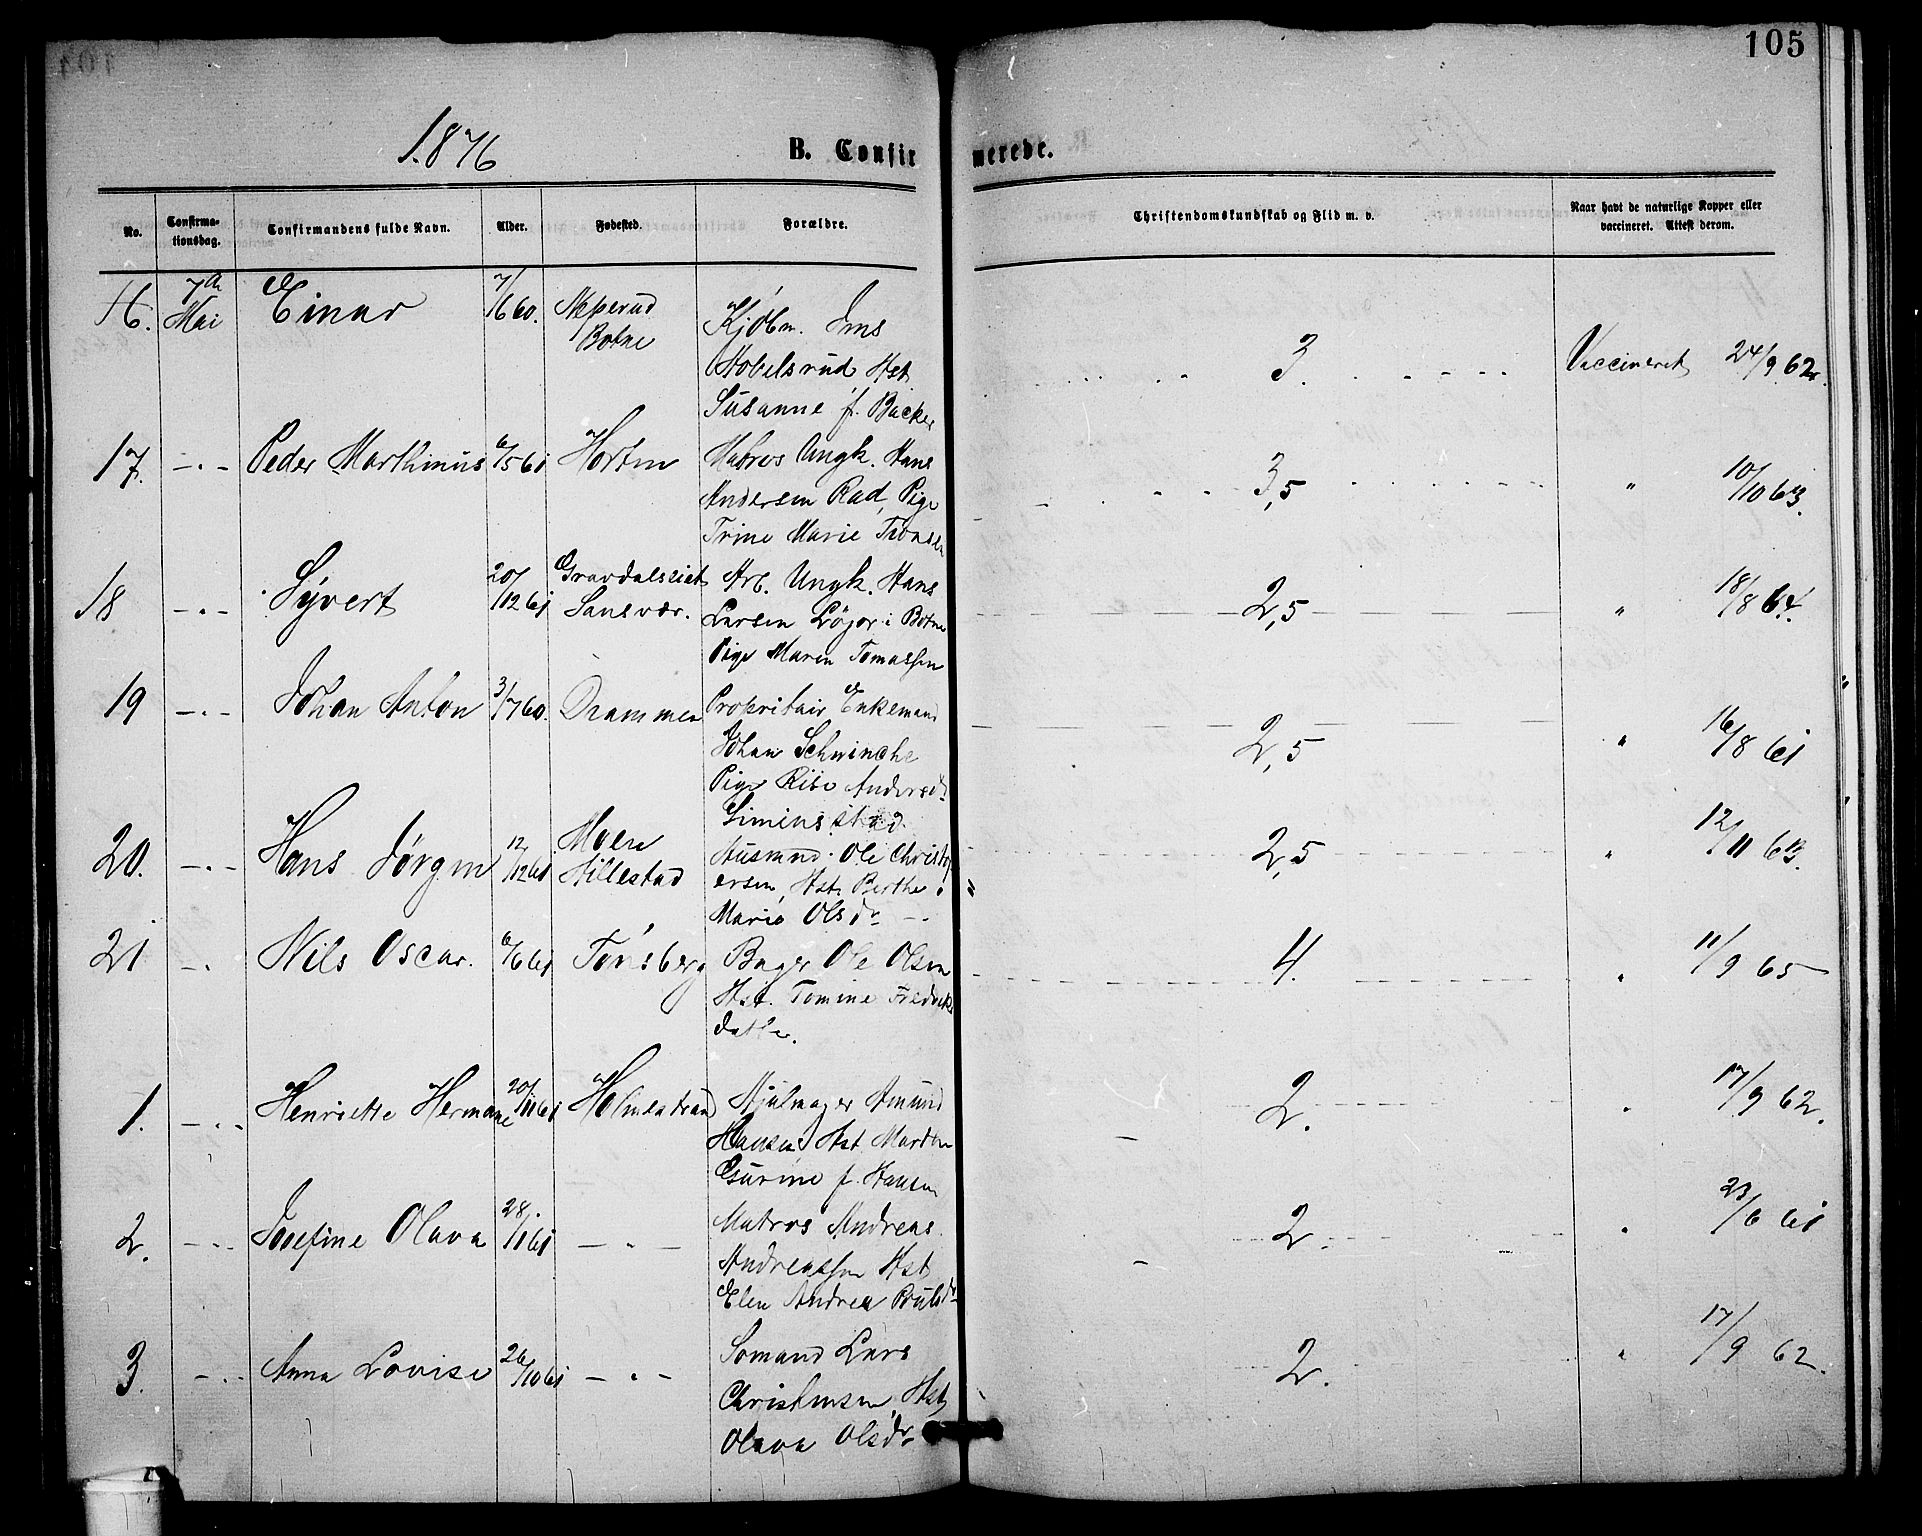 105
1876 B. Confirmerede.
No. Confirmationsdag. Confirmandens fulde Navn. Alder. Fødested. Forældre. Christendomskundskab og Flid m. v. Naar havt de naturlige Kopper eller vaccineret. Attest derom.
16. 7de Mai Einar 7/6 60. Botne Kjøbm. Jens
Susanne f. Backer 3. Vaccineret 24/9 62.
17. — " — Peder Marthinus 6/5 61 Horten Matros Ungk. Hans
Andersen Rad, Pige
Trine Marie 3,5 " 10/10 63.
18 — " — Syvert 20/12 61 Sansvær. Arb. Ungk. Hans
Larsen i Botne
Pige Maren Tomassen 2,5 " 18/8 64.
19 — " — Johan Anton 3/7 60. Drammen Propritair Enkemand
Johan Schwincke
Pige Andersdr
2,5 " 16/8 61
20. — " — Hans Jørgen 12/12 61 Moen
Hillestad Husmand Ole Christof
ersen, Hst. Berthe
Marie Olsdr 2,5 " 12/11 63.
21 — " Nils Oscar. 6/6 61 Tønsberg Bager Ole Olsen
Hst. Tomine Fredricks
datter. 4. " 11/9 65
1. — " — Henriette Hermane 20/11 61 Holmestrand Hjulmager Amund
Hansen, Hst
Gurine f. Hansen 2. " 17/9 62.
2. — " — Josefine Olava 28/1 61 — " — Matros Andreas
Andreassen Hst
Elen Andrea Poulsdr 2. " 23/6 61
3. — " — Anna Lovise 26/10 61 — " — Sømand Lars
Christensen, Hst
Olava Olsdr 2. " 17/9 62.